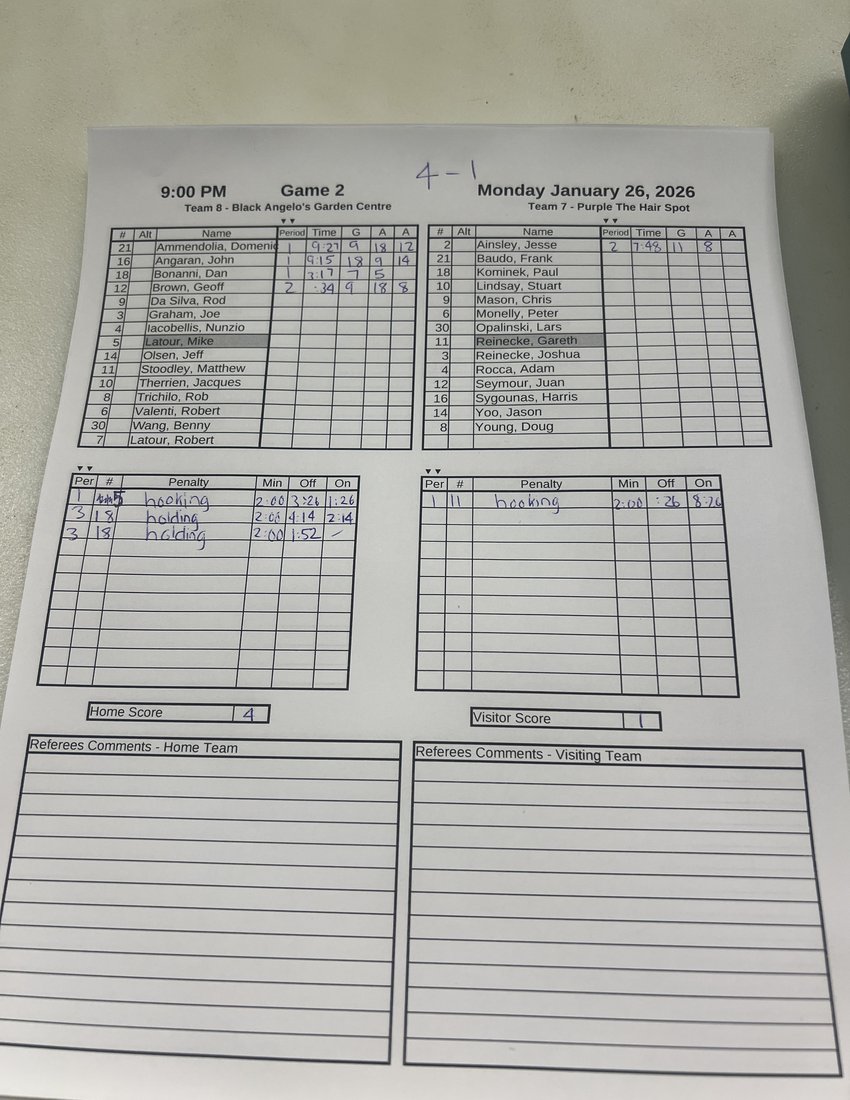 4-1
9:00 PM Game 2 Monday January 26, 2026
Team 8 - Black Angelo's Garden Centre
# Alt Name Period Time G A A
21 Ammendolia, Domenic 1 9:27 9 18 12
16 Angaran, John 1 9:15 18 9 14
18 Bonanni, Dan 1 3:17 7 5
12 Brown, Geoff 2 :34 9 18 8
9 Da Silva, Rod
3 Graham, Joe
4 Iacobellis, Nunzio
5 Latour, Mike
14 Olsen, Jeff
11 Stoodley, Matthew
10 Therrien, Jacques
8 Trichilo, Rob
6 Valenti, Robert
30 Wang, Benny
7 Latour, Robert
Team 7 - Purple The Hair Spot
# Alt Name Period Time G A A
2 Ainsley, Jesse 2 7:48 11 8
21 Baudo, Frank
18 Kominek, Paul
10 Lindsay, Stuart
9 Mason, Chris
6 Monelly, Peter
30 Opalinski, Lars
11 Reinecke, Gareth
3 Reinecke, Joshua
4 Rocca, Adam
12 Seymour, Juan
16 Sygounas, Harris
14 Yoo, Jason
8 Young, Doug
Per # Penalty Min Off On
1 5 hooking 2:00 3:26 1:26
3 18 holding 2:00 4:14 2:14
3 18 holding 2:00 1:52 -
Per # Penalty Min Off On
1 11 hooking 2:00 :26 8:26
Home Score 4
Visitor Score 1
Referees Comments - Home Team
Referees Comments - Visiting Team